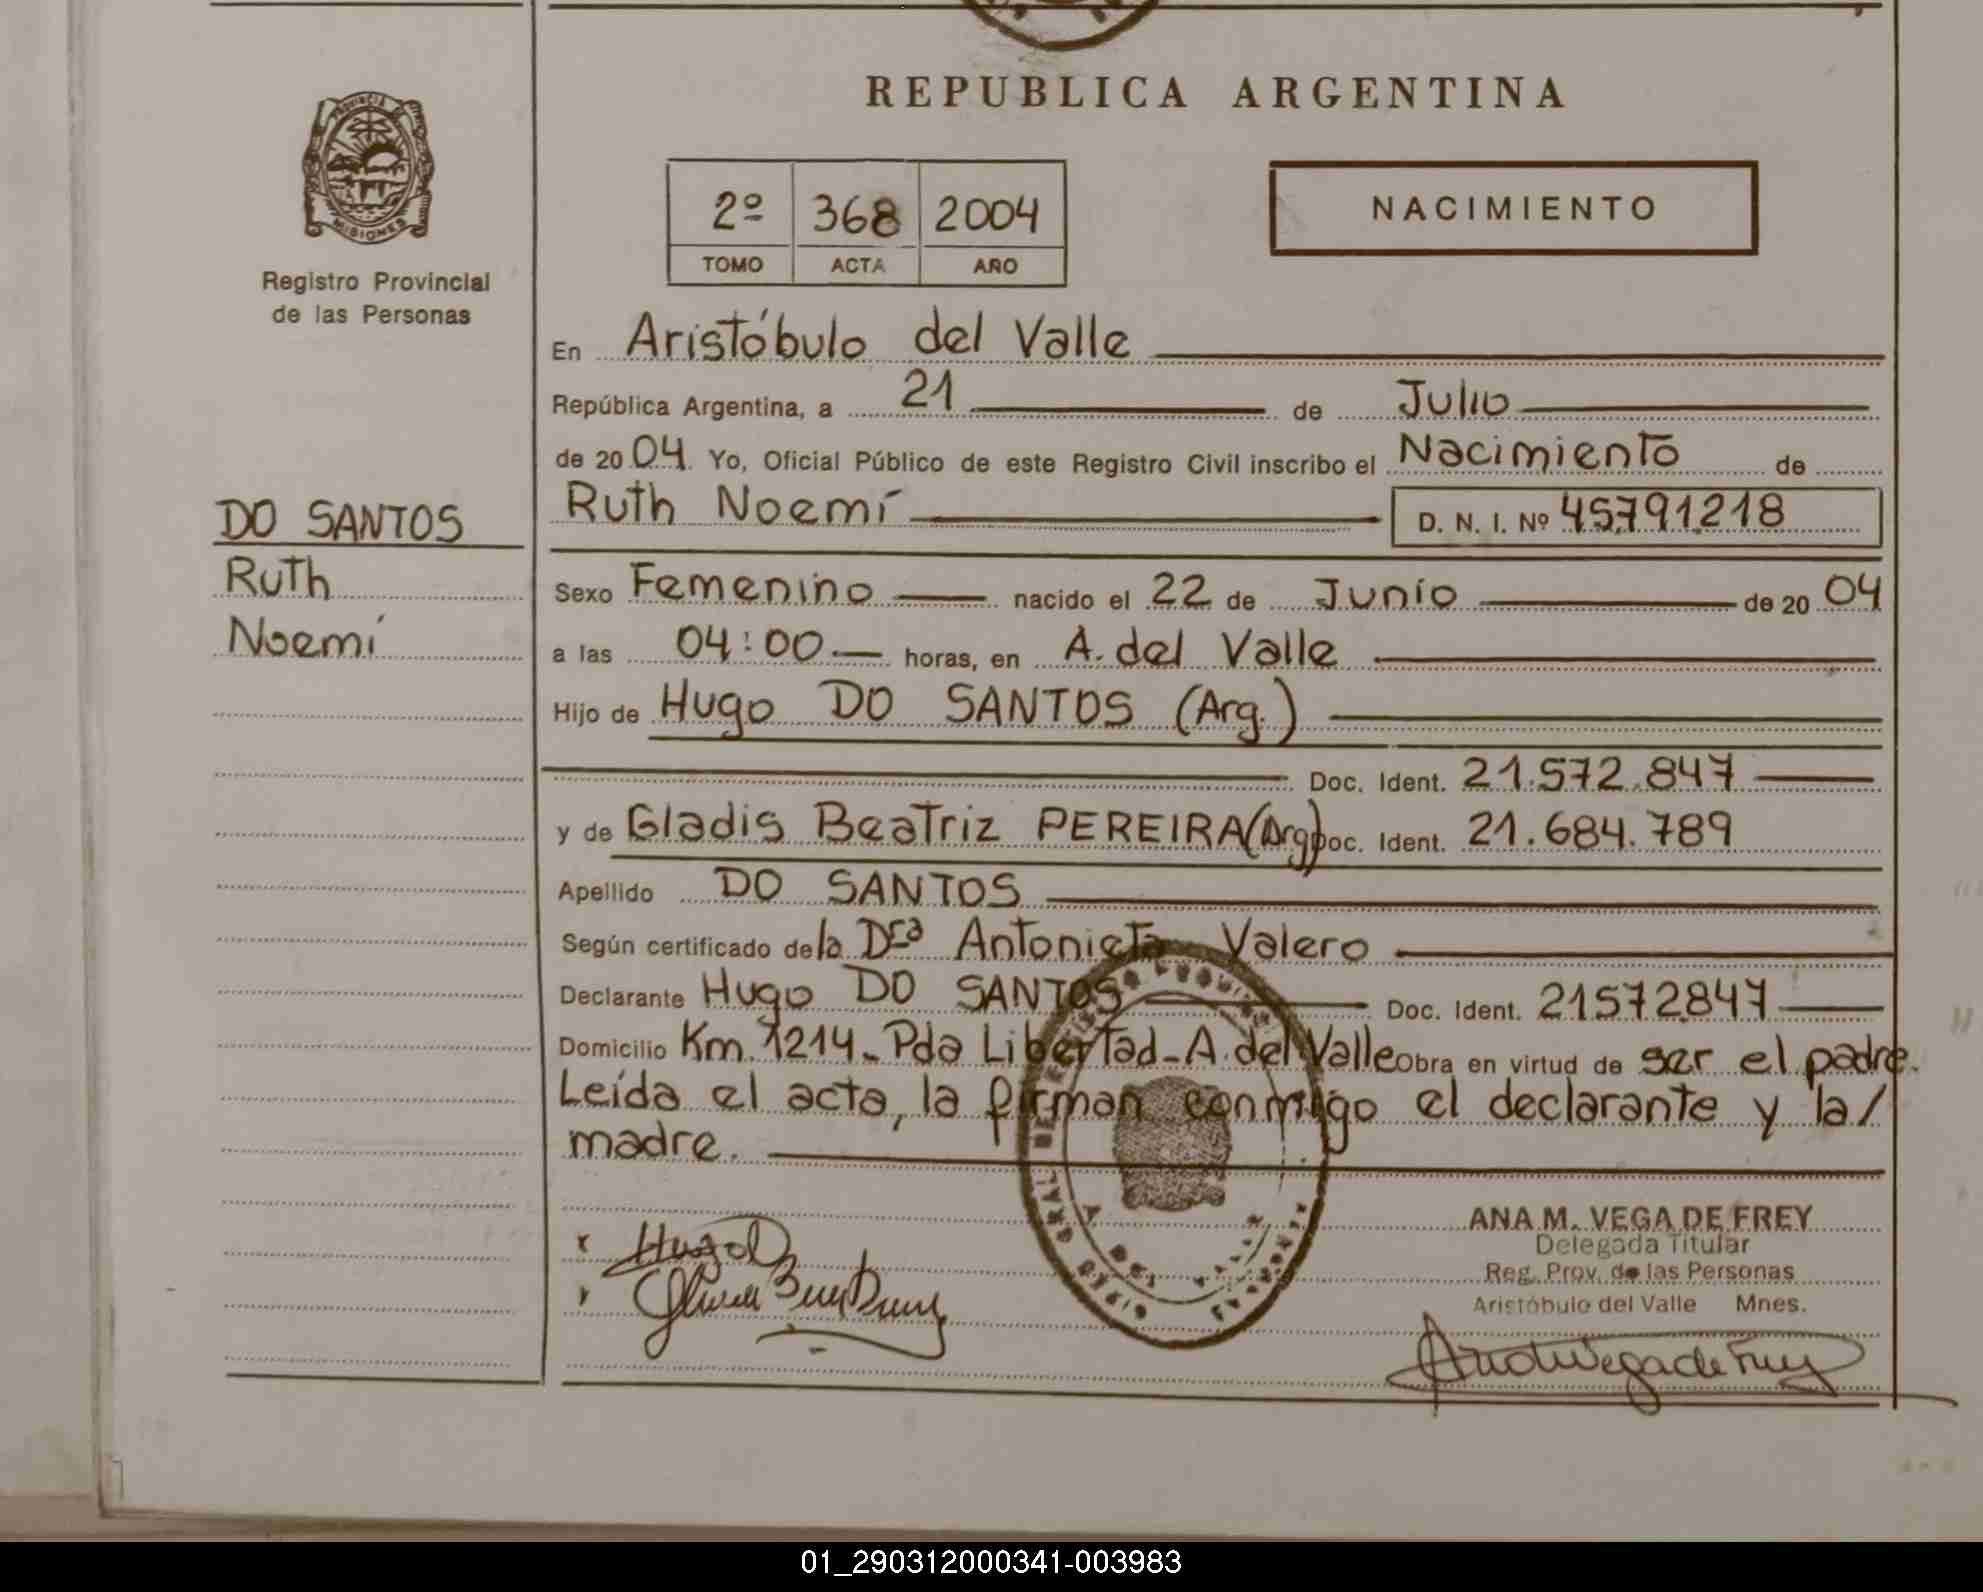 REPUBLICA ARGENTINA
PROVINCIA DE
MISIONES
Registro Provincial
de las Personas
2º 368 2004
TOMO ACTA AÑO
NACIMIENTO
En Aristóbulo del Valle
República Argentina, a 21 de Julio
de 2004. Yo, Oficial Público de este Registro Civil inscribo el Nacimiento de
Ruth Noemí D. N. I. Nº 45791218
DO SANTOS
Ruth
Noemí
Sexo Femenino nacido el 22 de Junio de 2004
a las 04:00 horas, en A. del Valle
Hijo de Hugo DO SANTOS (Arg.)
Doc. Ident. 21.572.847
y de Gladis Beatriz PEREIRA (Arg) Doc. Ident. 21.684.789
Apellido DO SANTOS
Según certificado de la Dra Antonieta Valero
Declarante Hugo DO SANTOS Doc. Ident. 21572847
Domicilio Km. 1214_ Pda Libertad_A. del Valle obra en virtud de ser el padre.
Leída el acta, la firman conmigo el declarante y la/
madre.
Hugo D
ANA M. VEGA DE FREY
Delegada Titular
Reg. Prov. de las Personas
Aristóbulo del Valle Mnes.
01_290312000341-003983